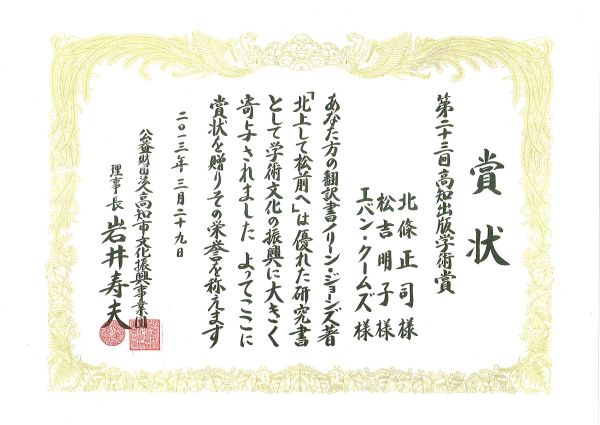 賞状
第二十三回高知出版学術賞
北條正司様
松吉明子様
エバン・クームズ様
あなた方の翻訳書イリーン・ジョーンズ著
「北上して松前へ」は優れた研究書
として学術文化の振興に大きく
寄与されました よってここに
賞状を贈りその栄誉を称えます
二〇一三年三月二十九日
公益財団法人高知市文化振興事業団
理事長 岩井寿夫